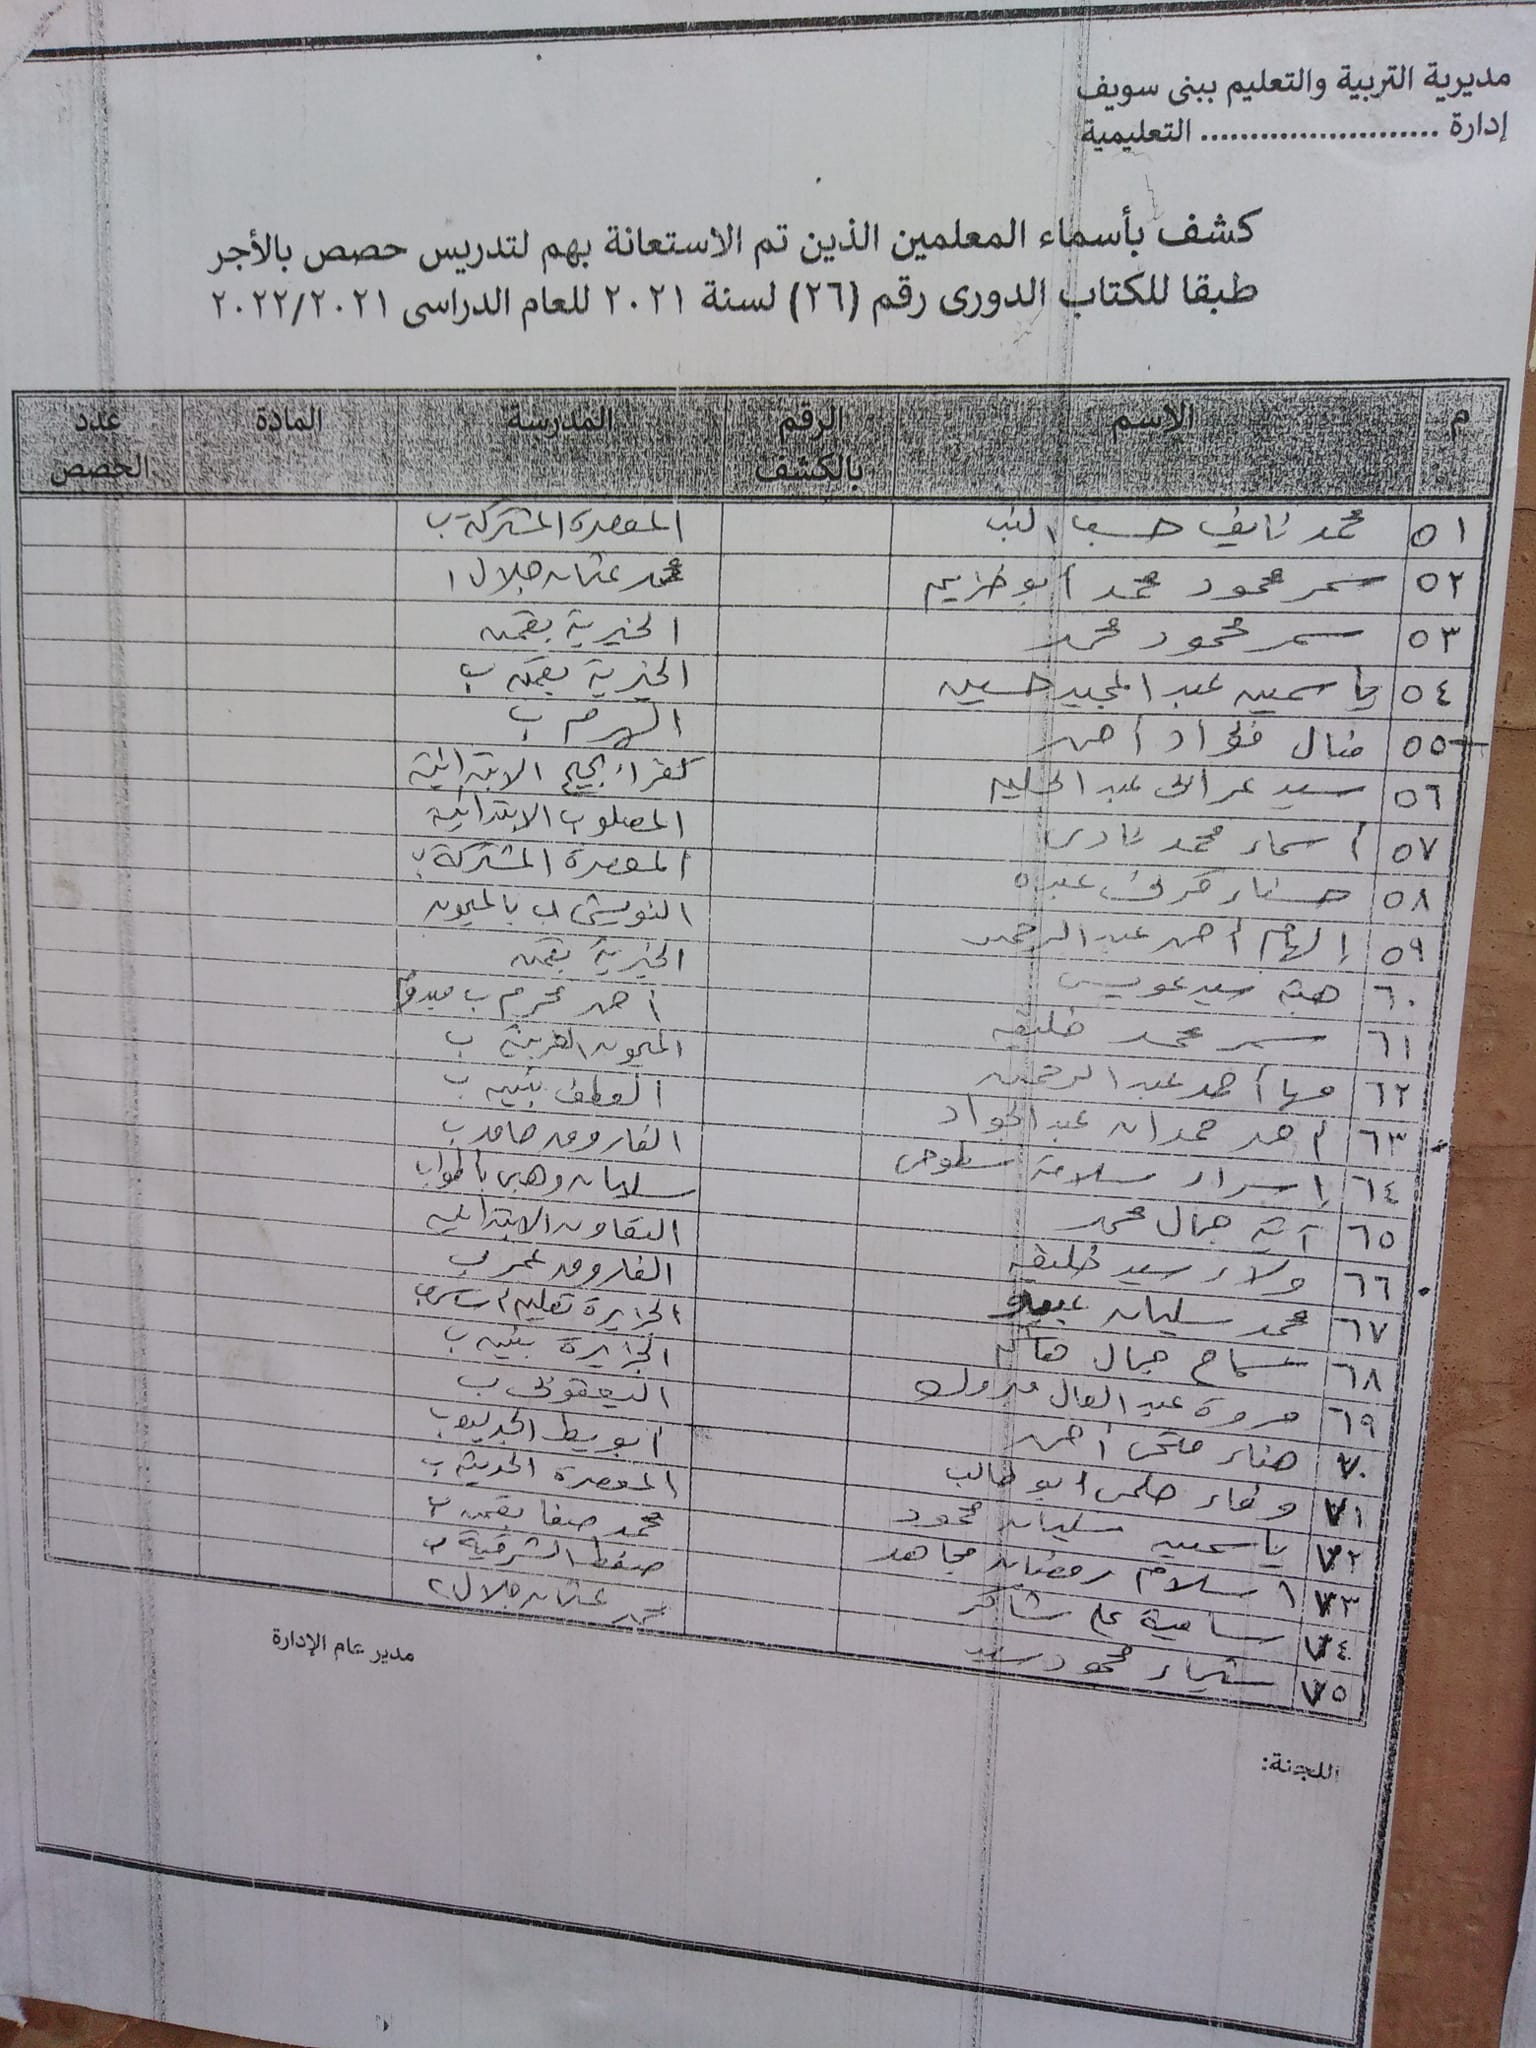 مديرية التربية والتعليم ببنى سويف
إدارة ........................ التعليمية
كشف بأسماء المعلمين الذين تم الاستعانة بهم لتدريس حصص بالأجر
طبقا للكتاب الدورى رقم (٢٦) لسنة ٢٠٢١ للعام الدراسى ٢٠٢٢/٢٠٢١
م الاسم الرقم بالكشف المدرسة المادة عدد الحصص
٥١ محمد نايف حسب النب المعصرة المشتركة ب
٥٢ سمر محمود محمد أبو خزيم محمد عثمان جلال ١
٥٣ سمر محمود محمد الخيرية بقمن
٥٤ ياسمين عبد المجيد حسين الخيرية بقمن ب
٥٥ منال فؤاد أحمد الهرم ب
٥٦ سيد عرابى عبد الحليم كفر ابجيج الابتدائية
٥٧ أسماء محمد نادى المصلوب الابتدائية
٥٨ حسناء قرنى عبده المعصرة المشتركة ب
٥٩ إلهام أحمد عبد الرحمن النويشى ب بالميمون
٦٠ هبة سيد عويس الخيرية بقمن
٦١ سمر محمد خليفه أحمد محرم ب ميدوم
٦٢ مها أحمد عبد الرحمن الميمون الغربية ب
٦٣ أحمد حمدان عبد الجواد العطف بنين ب
٦٤ إسراء سلامة سطوحى الفاروق حامد ب
٦٥ آية جمال محمد سليمان وهبى
٦٦ ولاء سيد خليفه التعاون الابتدائية
٦٧ محمد سليمان الفاروق عمر ب
٦٨ سماح جمال الجزيرة تعليم أساسى
٦٩ مروة عبد العال مبروك الجزيرة بنين ب
٧٠ هناء فتحى أحمد اليعقوبى ب
٧١ وفاء حلمى أبو طالب أبويط الجديدة ب
٧٢ ياسمين سليمان محمود المعصرة الحديثة ب
٧٣ اسلام رمضان مجاهد محمد صفا بقمن ب
٧٤ سامية على شاكر صفط الشرقية ب
٧٥ شيماء محمود سيد محمد عثمان جلال ٢
مدير عام الإدارة
اللجنة: